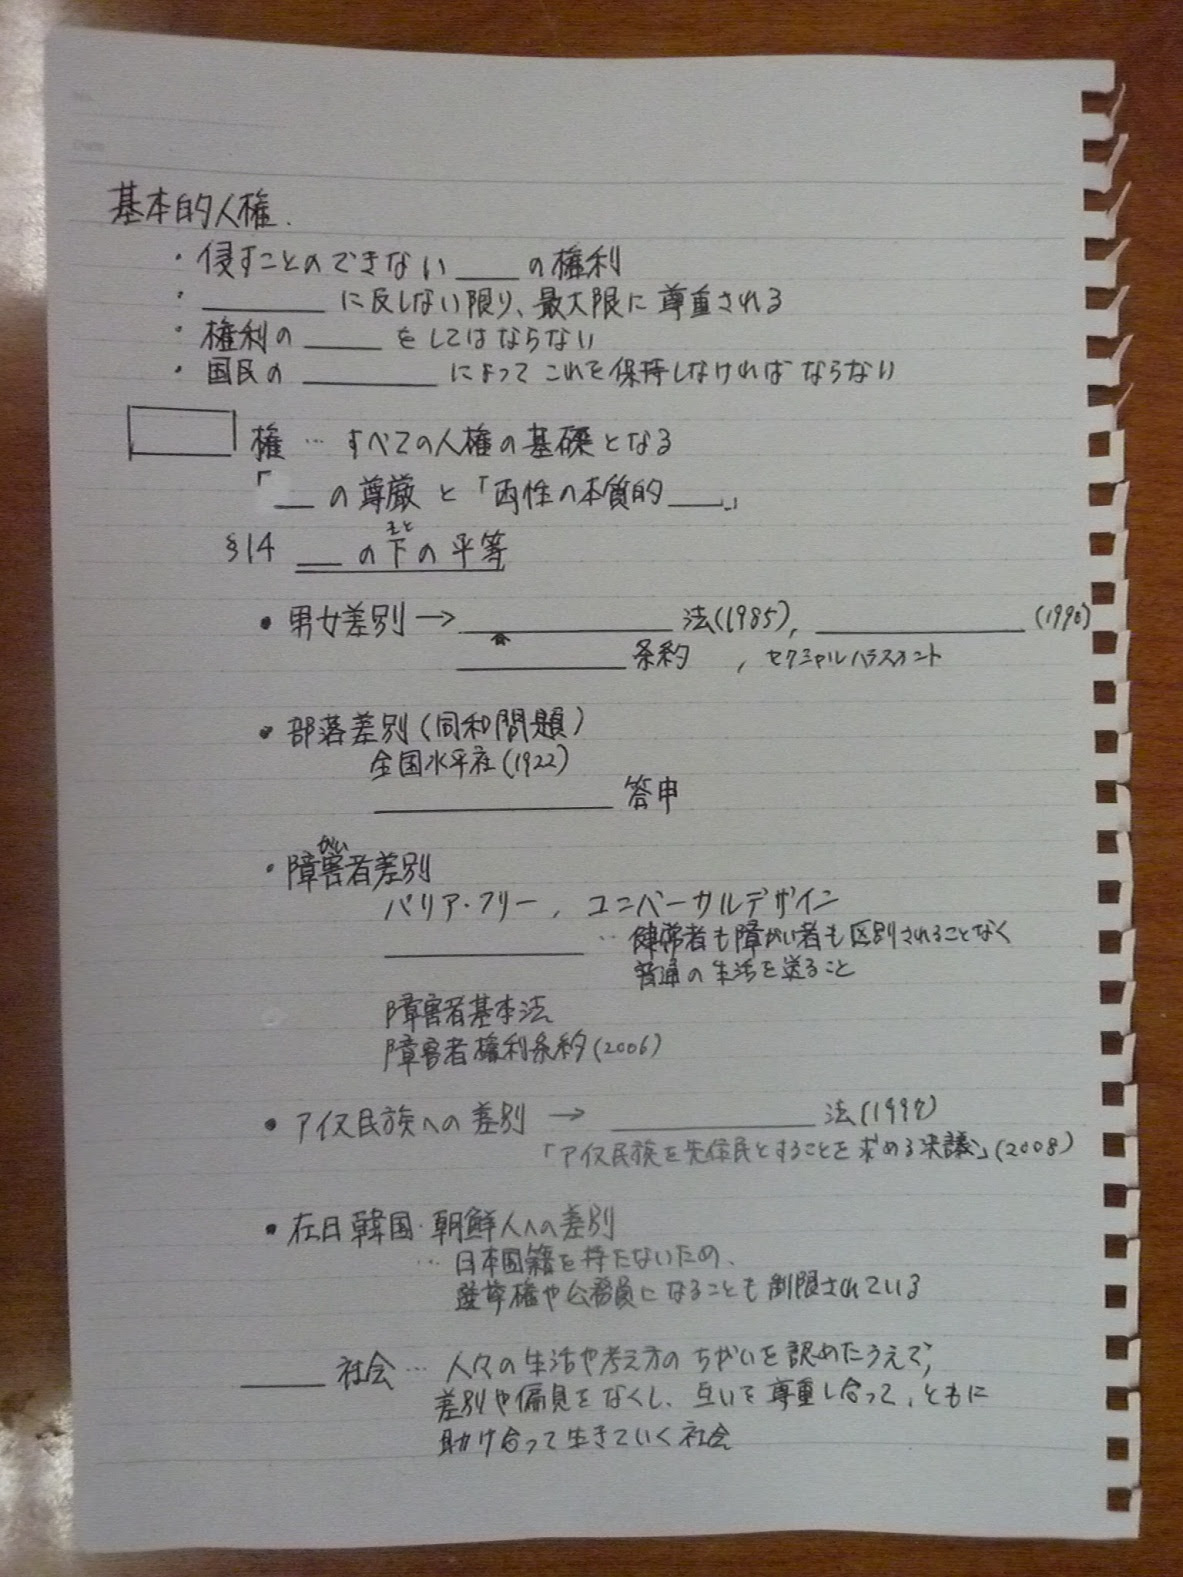 No.
Date
基本的人権.
・侵すことのできない____の権利
・________に反しない限り、最大限に尊重される
・権利の_____をしてはならない
・国民の________によってこれを保持しなければならない
権…すべての人権の基礎となる
「___の尊厳と「両性の本質的____」
§14 ___の下の平等
もと
・男女差別→______________法(1985), ______________(1990)
___________条約 , セクシャルハラスメント
・部落差別(同和問題)
全国水平社(1922)
________________答申
・障害者差別
がい
バリア・フリー, ユニバーサルデザイン
_____________…健常者も障がい者も区別されることなく
普通の生活を送ること
障害者基本法
障害者権利条約(2006)
・アイヌ民族への差別→_______________法(1997)
「アイヌ民族を先住民とすることを求める決議」(2008)
・在日韓国・朝鮮人への差別
…日本国籍を持たないため、
選挙権や公務員になることも制限されている
______社会…人々の生活や考え方のちがいを認めたうえで,
差別や偏見をなくし、互いを尊重し合って、ともに
助け合って生きていく社会